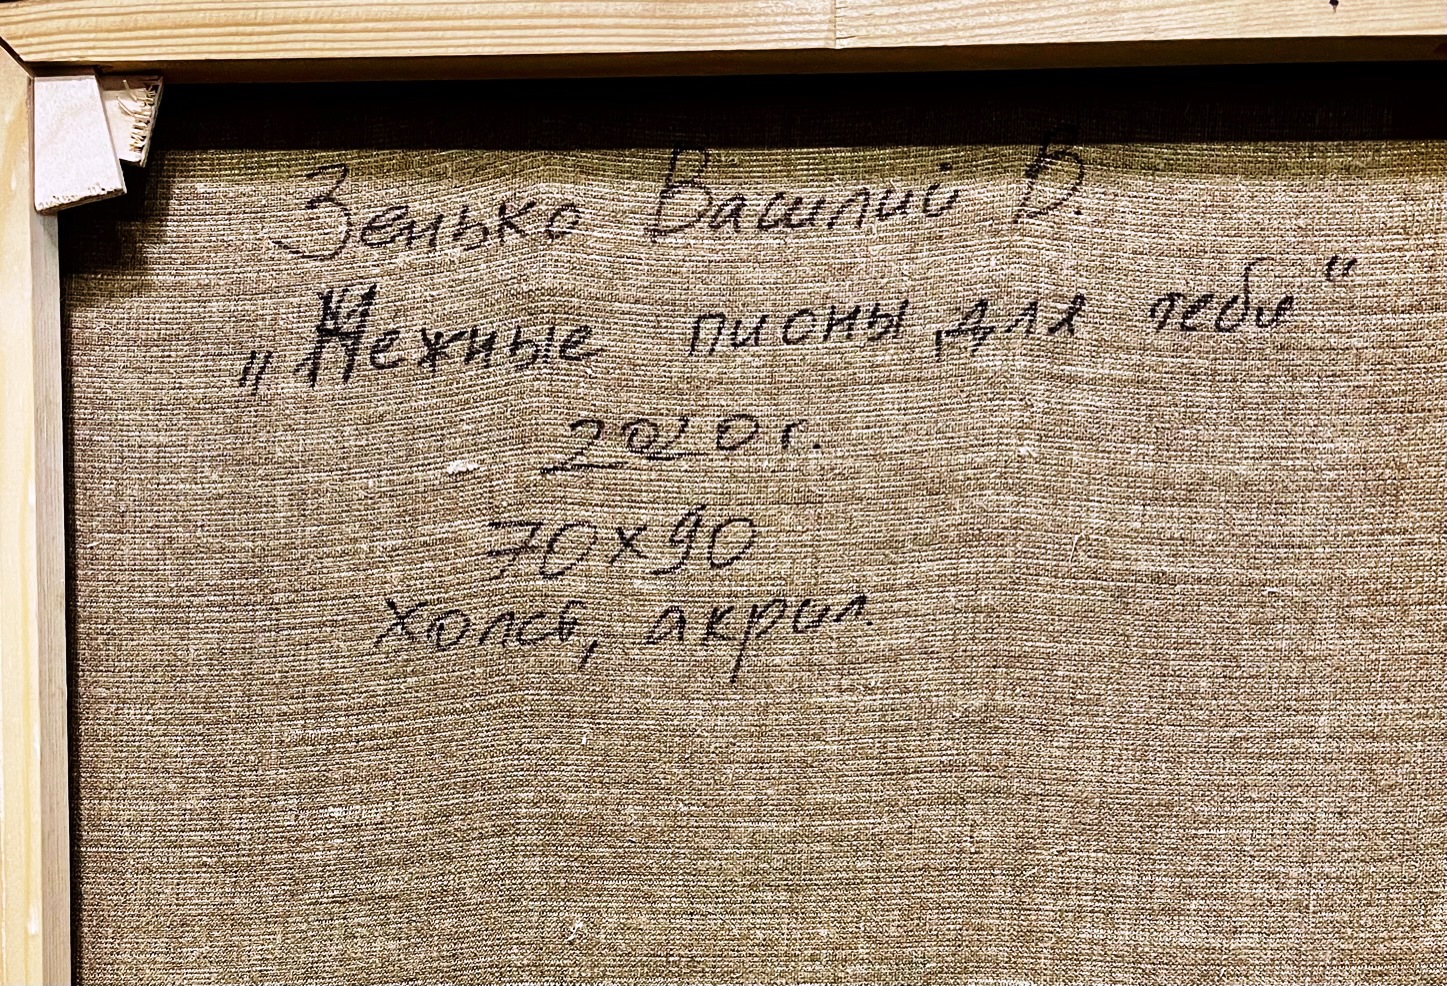 Зенько Василий В.
„Нежные пионы для тебя"
2020г.
70х90
Холст, акрил.